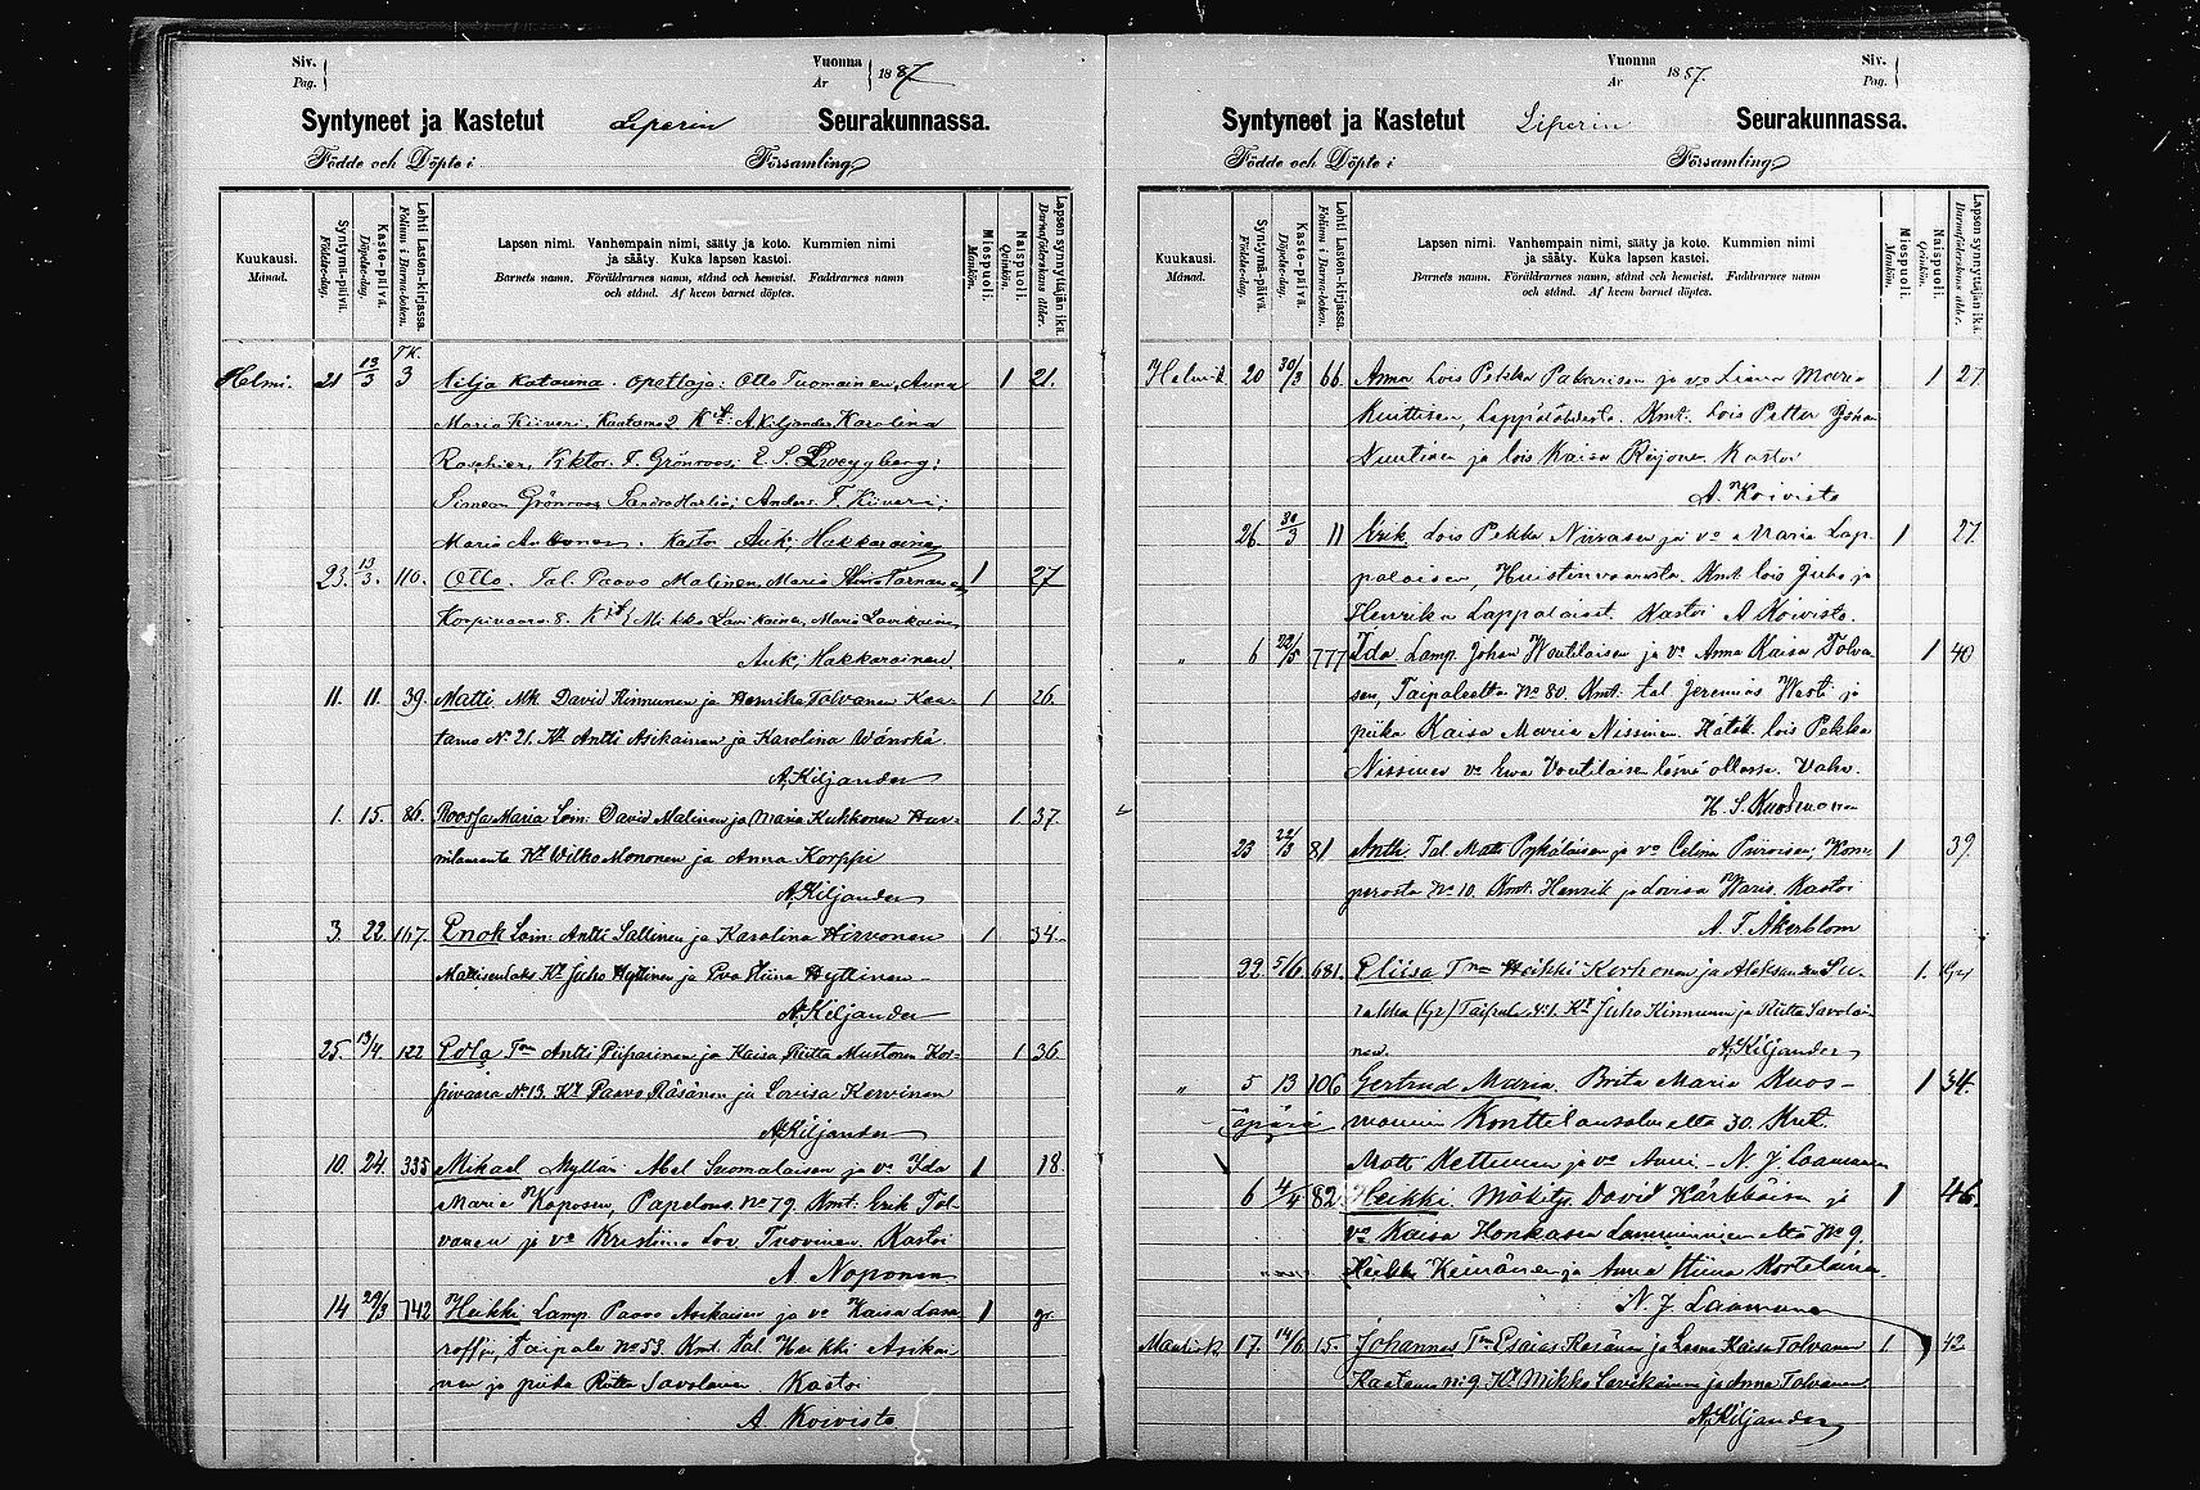 Siv.
Pag.
Vuonna
År
1887
Syntyneet ja Kastetut Liperin Seurakunnassa.
Födde och Döpte i Församling
Kuukausi.
Månad.
Syntymä-päivä.
Födelse-dag.
Kasto-päivä.
Döpelse-dag.
Lehti Lasten-kirjassa.
Folium i Barna-boken.
Lapsen nimi. Vanhempain nimi, sääty ja koto. Kummien nimi
ja sääty. Kuka lapsen kastoi.
Barnets namn. Föräldrarnes namn, stånd och hemvist. Faddrarnes namn
och stånd. Af hvem barnet döptes.
Miespuoli.
Mankön.
Naispuoli.
Qvinkön.
Lapsen synnyttäjän ikä.
Barnaföderskans ålder.
Helmi. 21 13/3 TK. 3 Lilja Katarina. Opettaja: Otto Tuomainen, Anna 1 21.
Maria Kiiveri. Kaatamo 2 Kit: A. Kiljander, Karolina
Roschier, Viktor. F. Grönroos; E. S.
Simeon Grönroos, Sandra Harlin; Anders. F. Kiiveri;
Maria . Kastoi Auk; Hakkarainen
23. 13/3. 110. Otto. Tal. Paavo Malinen, Maria Stina Tarnanen 1 27
Korpivaara. 8. Kit Mikko Lavikainen, Maria Lavikainen
Auk; Hakkarainen.
11. 11. 39. Matti Mk. David Kinnunen ja Henrika Tolvanen Kaa-
tamo No. 21. Kt Antti Asikainen ja Karolina Wänskä. 1 26.
A. Kiljander
1. 15. 86. Roosa Maria Loin: David Malinen ja Maria Kukkonen 1. 37.
Kt Wilho Mononen ja Anna Korppi
A. Kiljander
3. 22. 167. Enok Loin: Antti Sallinen ja Karolina Hirvonen 1 34.
Mattisenlaks Kt Juho Hyttinen ja Eva Stiina Hyttinen
A. Kiljander
25. 13/4. 122 Edla Tm Antti Piiparinen ja Kaisa Riitta Mustonen Kor- 1 36
pivaara No 13. Kt Paavo Räsänen ja Lovisa Kervinen
A. Kiljander
10. 24. 335 Mikael Myllär: Abel Suomalaisen ja vo Ida 1 18.
Maria Koposen, No 79. Kmt: Erik Tol-
vanen ja vo Kristiina Lov. Tuovinen. Kastoi
A. Noponen
14 29/3 742 Heikki Lamp. Paavo Asikaisen ja vo Kaisa Lasa- 1 gr.
roffin, Taipale No 53. Kmt. tal. Heikki Asikai-
nen ja piika Riitta Savolainen. Kastoi
A. Koivisto
Vuonna
År
1887.
Siv.
Pag.
Syntyneet ja Kastetut Liperin Seurakunnassa.
Födde och Döpte i Församling
Kuukausi.
Månad.
Syntymä-päivä.
Födelse-dag.
Kasto-päivä.
Döpelse-dag.
Lehti Lasten-kirjassa.
Folium i Barna-boken.
Lapsen nimi. Vanhempain nimi, sääty ja koto. Kummien nimi
ja sääty. Kuka lapsen kastoi.
Barnets namn. Föräldrarnes namn, stånd och hemvist. Faddrarnes namn
och stånd. Af hvem barnet döptes.
Miespuoli.
Mankön.
Naispuoli.
Qvinkön.
Lapsen synnyttäjän ikä.
Barnaföderskans ålder.
20 30/3 66. Anna Lois Pekka Pakarisen ja vo Liena Maria 1 27
Kuittisen, Kmt. Lois Petter Johan
Nuutinen ja lois Kaisa Reijonen. Kastoi
A. Koivisto
26. 30/3 11 Erik. Lois Pekka Niirasen ja vo Maria Lap- 1 27.
palaisen, Huistinvaarasta. Kmt. lois Juho ja
Henrika Lappalaiset. Kastoi A Koivisto.
" 6 22/5 777 Ida Lamp. Johan Woutilaisen ja vo Anna Kaisa Tolva- 1 40
sen, Taipaleelta No 80. Kmt. tal Jeremias Wasti ja
piika Kaisa Maria Nissinen. Hätäk. lois Pekka
Nissinen vo Ewa Voutilaisen läsnä ollessa. Vahv.
H. S. Kuosmonen
23 22/3 81 Antti. Tal. Matti Pykäläisen ja vo Celina Piiroisen; Kom- 1 39.
perosta No 10. Kmt. Henrik ja Lovisa Waris. Kastoi
A. T. Åkerblom
22. 5/6. 681. Eliisa Tm Heikki Korhonen ja Aleksandra Su- 1. Gr
rakka (Gr) Taipale No 1. Kt Juho Kinnunen ja Riitta Savolai-
nen. A. Kiljander
" 5 13 106 Gertrud Maria. Brita Maria Kuos- 1 34.
äpärä mannin Konttilansalmelta 30. Kmt.
Matti Kettunen ja vo Anni. - N. J. Laamanen
6 4/4 82. Heikki. Mäkity. David Kärkkäisen ja 1 46.
vo Kaisa Honkasen Lamminniemeltä No 9.
Heikki Keinänen ja Anna Stiina Kortelainen.
N. J. Laamanen
Maalisk 17. 14/6. 15. Johannes Tm Esaias Kesänen ja Leena Kaisa Tolvanen 1. 42
Kaatamo No 9. Kt Mikko Lavikainen ja Anna Tolvanen.
A. Kiljander